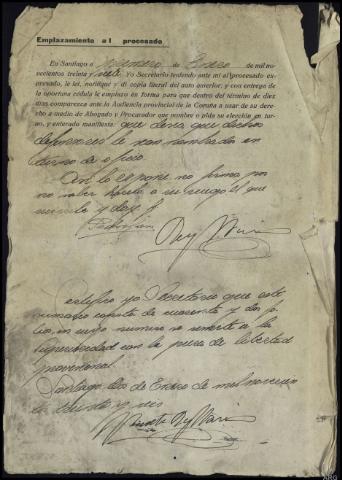 Emplazamiento al procesado
En Santiago a primero de Enero de mil no-
vecientos treinta y siete. Yo Secretario teniendo ante mí al procesado ex-
presado, le leí, notifiqué y di copia literal del auto anterior, y con entrega de
la oportuna cédula le emplazo en forma para que dentro del término de diez
días comparezca ante la Audiencia provincial de la Coruña a usar de su dere-
cho a medio de Abogado y Procurador que nombre o pida su elección en tur-
no, y enterado manifiesta: que desea que dichos
defensores le sean nombrados en
turno de oficio.
Así lo expone no firma por
no saber hácelo a su ruego el que
suscribe y doy fe
Rey
Certifico yo Secretario que este
sumario consta de cuarenta y dos fo-
lios, en cuyo número se remite a la
Superioridad con la pieza de libertad
provisional.
Santiago dos de Enero de mil novecien
tos treinta y
Rey